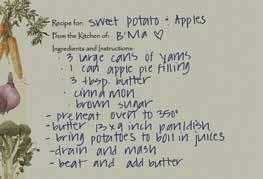 Recipe for: sweet potato + Apples
From the Kitchen of: B'Ma ♡
Ingredients and Instructions:
· 3 large cans of yams
· 1 can apple pie filling
· 3 tbsp. butter
· cinnamon
· brown sugar
- preheat oven to 350°
- butter 13x9 inch pan/dish
- bring potatoes to boil in juices
- drain and mash
- beat and add butter